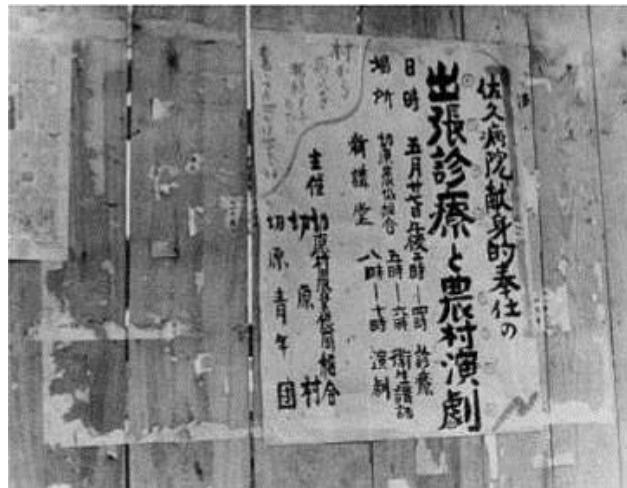 佐久病院献身的奉仕の
出張診療と農村演劇
日時 五月廿七日午後二時―四時 診療
五時―六時 衛生講話
八時―十時 演劇
場所 切原農協組合
新講堂
主催 切原村農業協同組合
切原村
切原青年団
村から